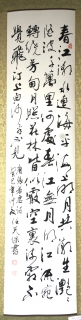 春江潮水連海平海上明月共潮生灩灩
隨波千萬里何處春江無月明江流宛
轉繞芳甸月照花林皆似霰空裏流霜不
覺飛汀上白沙看不見